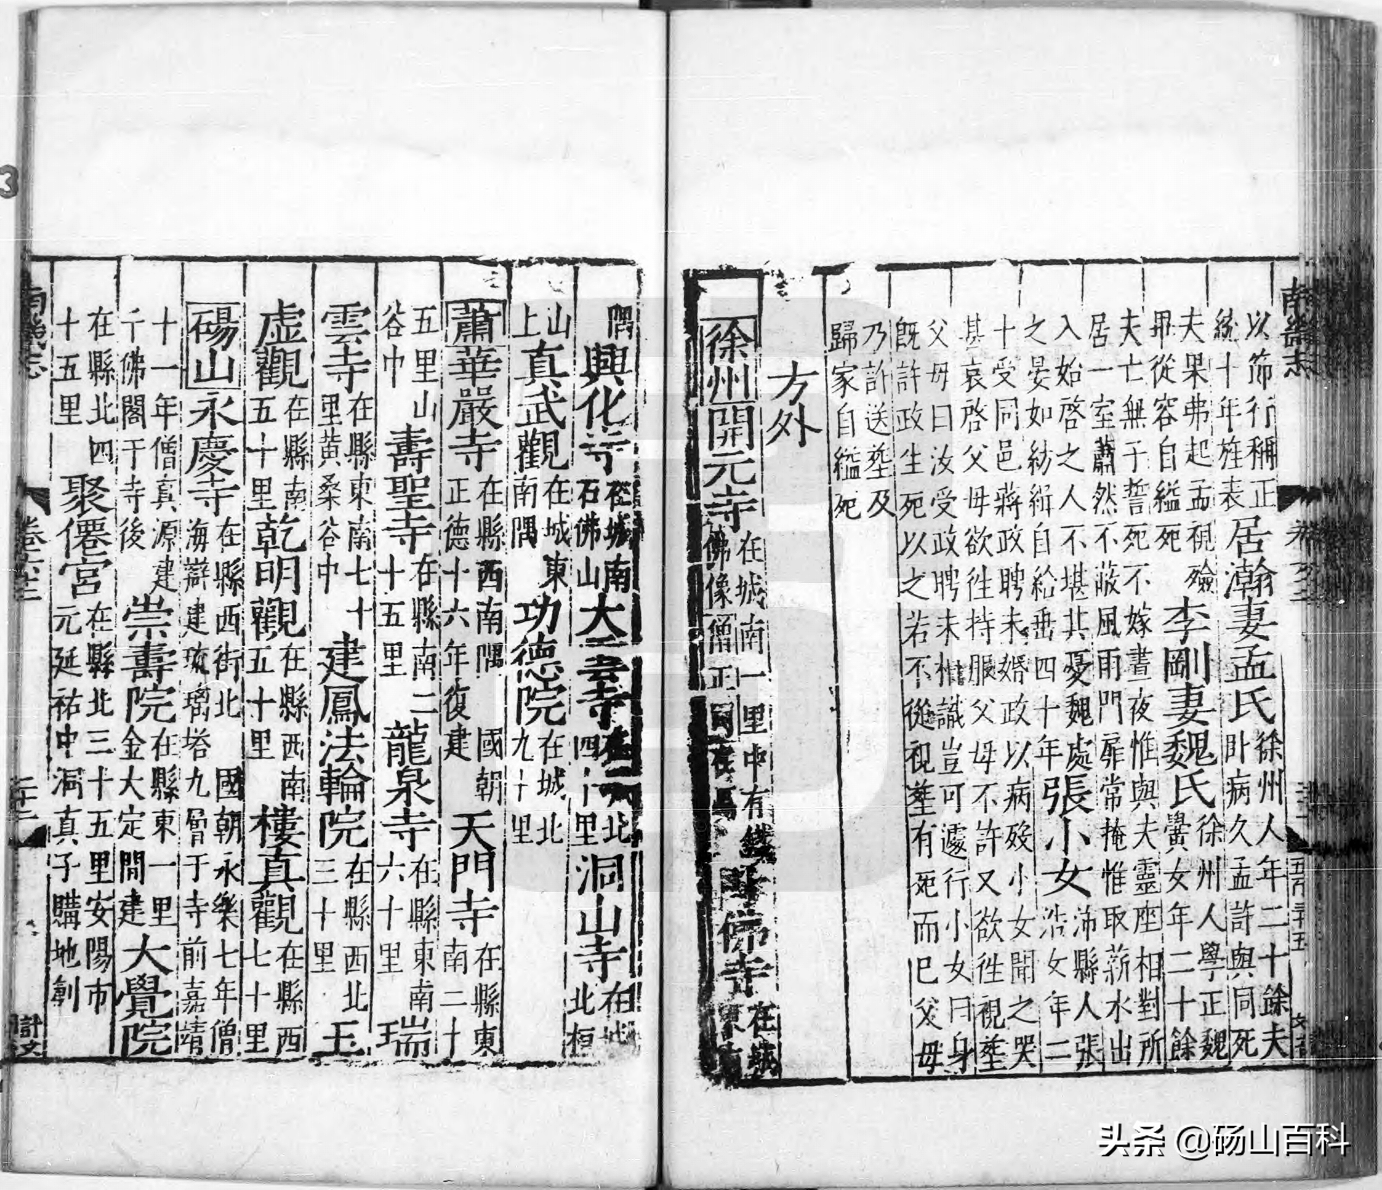 以節行稱正
統十年旌表
居瀚妻孟氏
徐州人年二十餘夫
卧病久孟許與同死
夫果弗起孟視殮
畢從容自縊死
李剛妻魏氏
徐州人學正魏
黌女年二十餘
夫亡無子誓死不嫁晝夜惟與夫靈座相對所
居一室蕭然不蔽風雨門扉常掩惟取薪水出
入始啓之人不堪其憂魏處
之晏如紡緝自給垂四十年
張小女
沛縣人張
浩女年二
十受同邑蔣政聘未婚政以病歿小女聞之哭
甚哀啓父母欲徃持服父母不許又欲徃視塟
父母曰汝受政聘未相識豈可遽行小女曰身
既許政生死以之若不從視塟有死而已父母
乃許送塟及
歸家自縊死
方外
徐州開元寺
在城南一里中有鐵
佛像僧正司在焉
佛寺
在城
東南
隅
興化寺
在城南
石佛山
大雲寺
北
四十里
洞山寺
在城
北桓
山
上
真武觀
在城東
南隅
功德院
在城北
九十里
蕭華嚴寺
在縣西南隅國朝
正德十六年復建
天門寺
在縣東
南二十
五里山
谷中
壽聖寺
在縣南二
十五里
龍泉寺
在縣東南
六十里
瑞
雲寺
在縣東南七十
里黄桑谷中
建鳳法輪院
在縣西北
三十里
玉
虚觀
在縣南
五十里
乾明觀
在縣西南
五十里
樓真觀
在縣西
七十里
碭山永慶寺
在縣西街北國朝永樂七年僧
海辯建琉璃塔九層于寺前嘉靖
十一年僧真源建
千佛閣于寺後
崇壽院
在縣東一里
金大定間建
大覺院
在縣北四
十五里
聚僊宫
在縣北三十五里安陽市
元延祐中洞真子購地剏